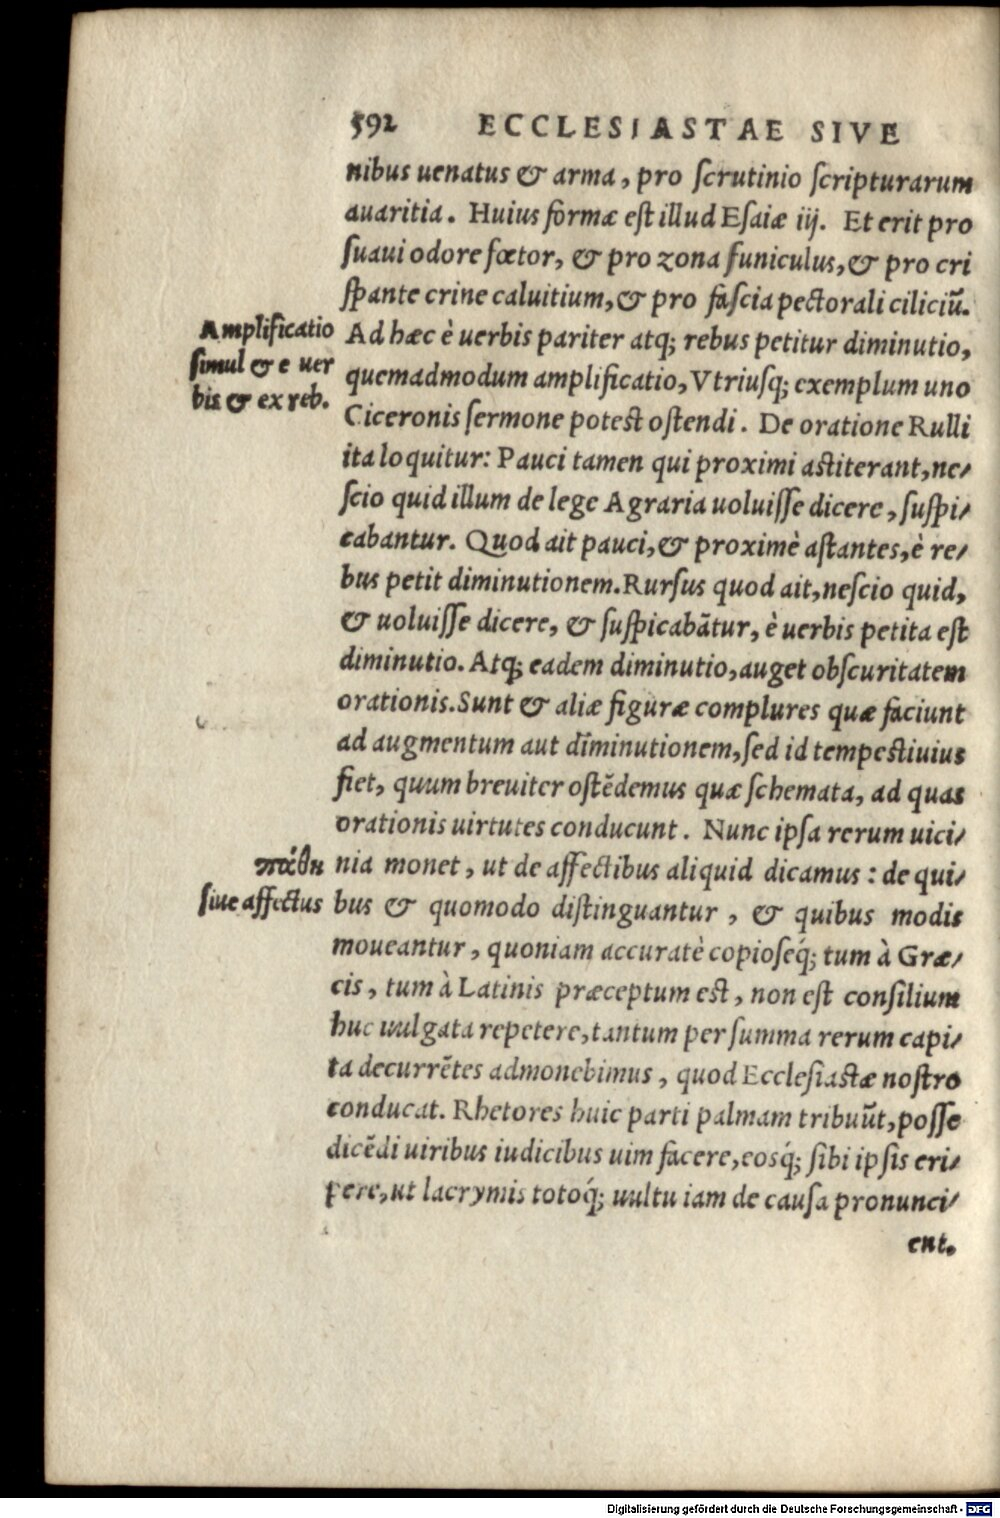 592 ECCLESIASTAE SIVE
nibus uenatus & arma, pro ſcrutinio ſcripturarum
auaritia. Huius formæ eſt illud Eſaiæ iij. Et erit pro
ſuaui odore fœtor, & pro zona funiculus, & pro cri
ſpante crine caluitium, & pro faſcia pectorali ciliciũ.
Amplificatio
ſimul & e uer
bis & ex reb.
Ad hæc è uerbis pariter atq; rebus petitur diminutio,
quemadmodum amplificatio, Vtriuſq; exemplum uno
Ciceronis ſermone poteſt oſtendi. De oratione Rulli
ita loquitur: Pauci tamen qui proximi aſtiterant, ne/
ſcio quid illum de lege Agraria uoluiſſe dicere, ſuſpi/
cabantur. Quod ait pauci, & proximè aſtantes, è re/
bus petit diminutionem. Rurſus quod ait, neſcio quid,
& uoluiſſe dicere, & ſuſpicabãtur, è uerbis petita eſt
diminutio. Atq; eadem diminutio, auget obſcuritatem
orationis. Sunt & aliæ figuræ complures quæ faciunt
ad augmentum aut diminutionem, ſed id tempeſtiuius
fiet, quum breuiter oſtẽdemus quæ ſchemata, ad quas
orationis uirtutes conducunt. Nunc ipſa rerum uici/
πάθη
ſiue affectus
nia monet, ut de affectibus aliquid dicamus: de qui/
bus & quomodo diſtinguantur, & quibus modis
moueantur, quoniam accuratè copioſeq́; tum à Græ/
cis, tum à Latinis præceptum eſt, non eſt conſilium
huc uulgata repetere, tantum per ſumma rerum capi/
ta decurrẽtes admonebimus, quod Eccleſiaſtæ noſtro
conducat. Rhetores huic parti palmam tribuũt, poſſe
dicẽdi uiribus iudicibus uim facere, eosq́; ſibi ipſis eri/
pere, ut lacrymis totoq́; uultu iam de cauſa pronunci/
ent.
Digitalisierung gefördert durch die Deutsche Forschungsgemeinschaft - DFG